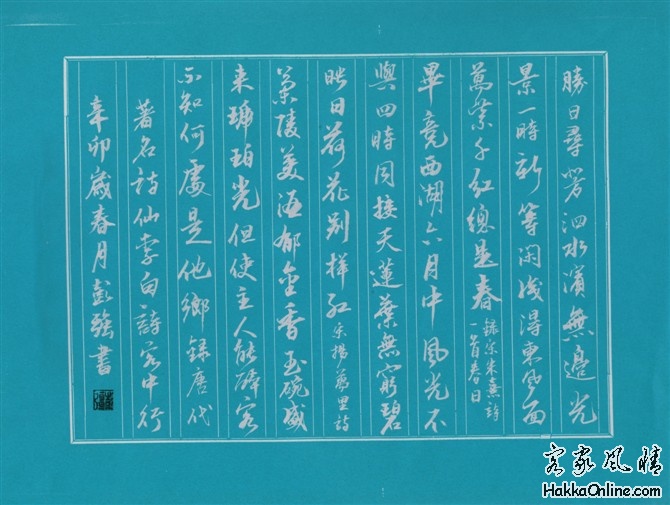 勝日尋芳泗水濱無邊光
景一時新等闲识得東風面
萬紫千紅總是春
錄宋朱熹詩
一首春日
畢竟西湖六月中風光不
與四時同接天蓮葉無窮碧
映日荷花别樣红宋楊萬里詩
蘭陵美酒郁金香玉碗盛
来琥珀光但使主人能醉客
不知何處是他鄉錄唐代
著名詩仙李白詩客中行
辛卯歲春月彭強書
客家風情
HakkaOnline.com